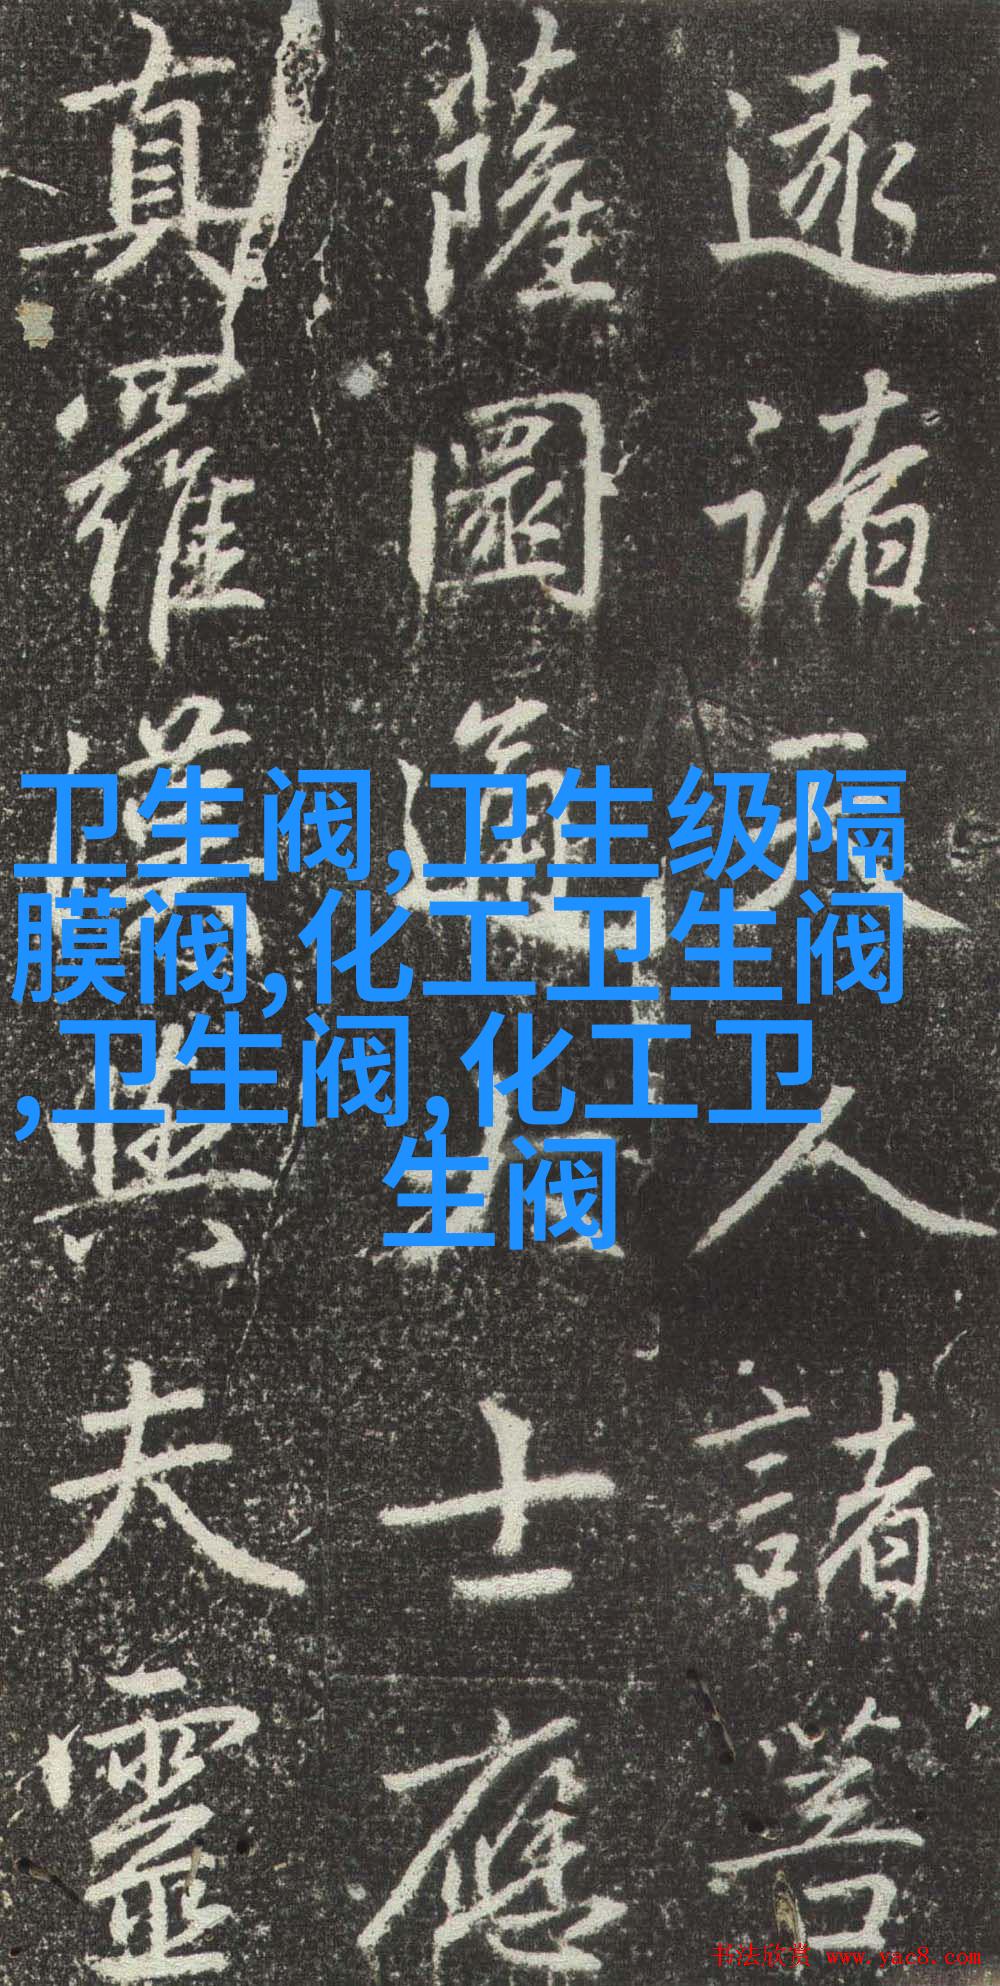 遠諸天人諸菩
薩圓通大士應
真羅漢與夫靈
卫生阀,卫生级隔
膜阀,化工卫生阀
,卫生阀,化工卫
生阀
书法欣赏 www.yac8.com